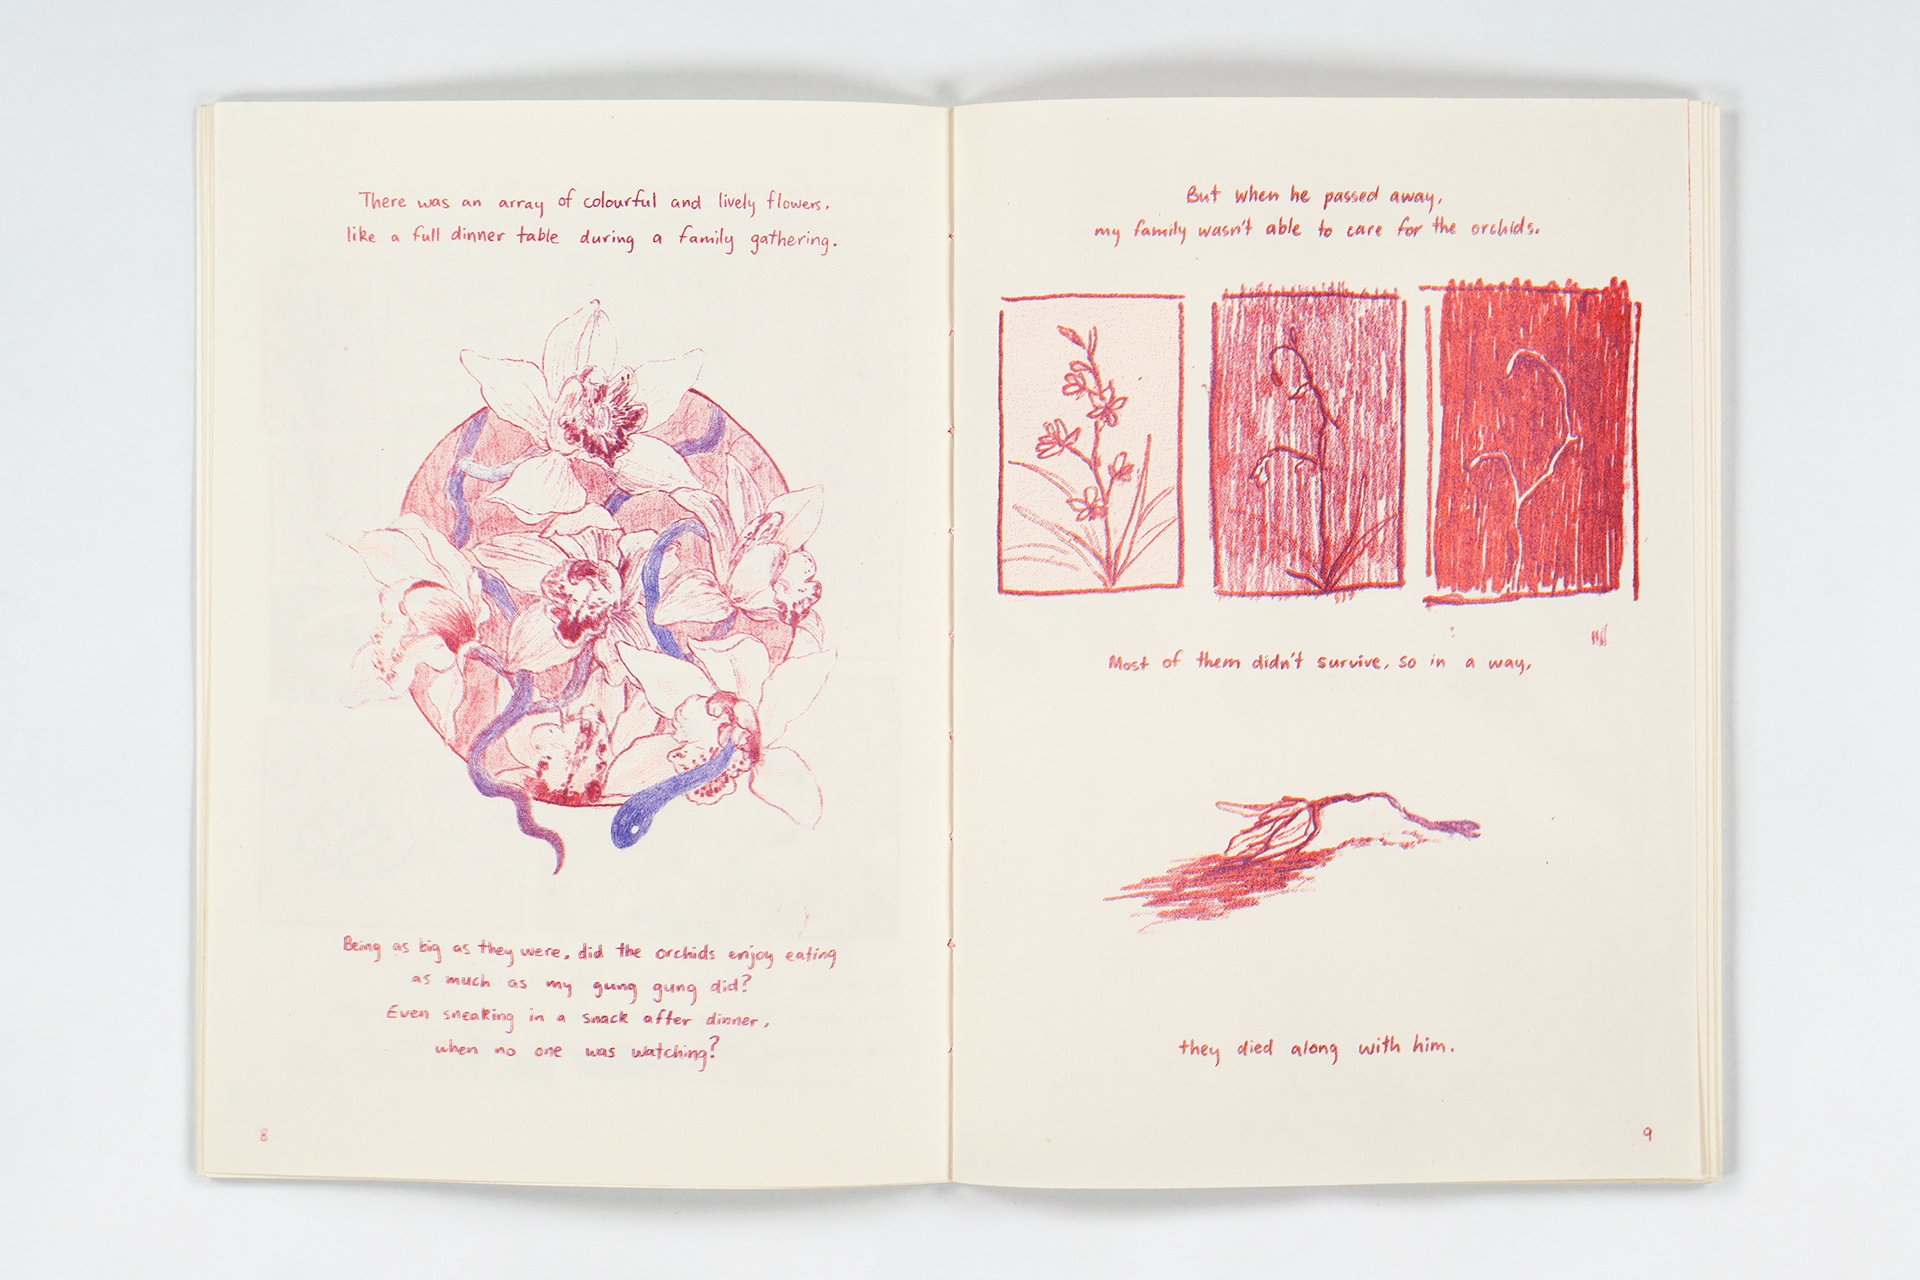 There was an array of colourful and lively flowers,
like a full dinner table during a family gathering.
Being as big as they were, did the orchids enjoy eating
as much as my gung gung did?
Even sneaking in a snack after dinner,
when no one was watching?
8
But when he passed away,
my family wasn't able to care for the orchids.
Most of them didn't survive, so in a way,
they died along with him.
9